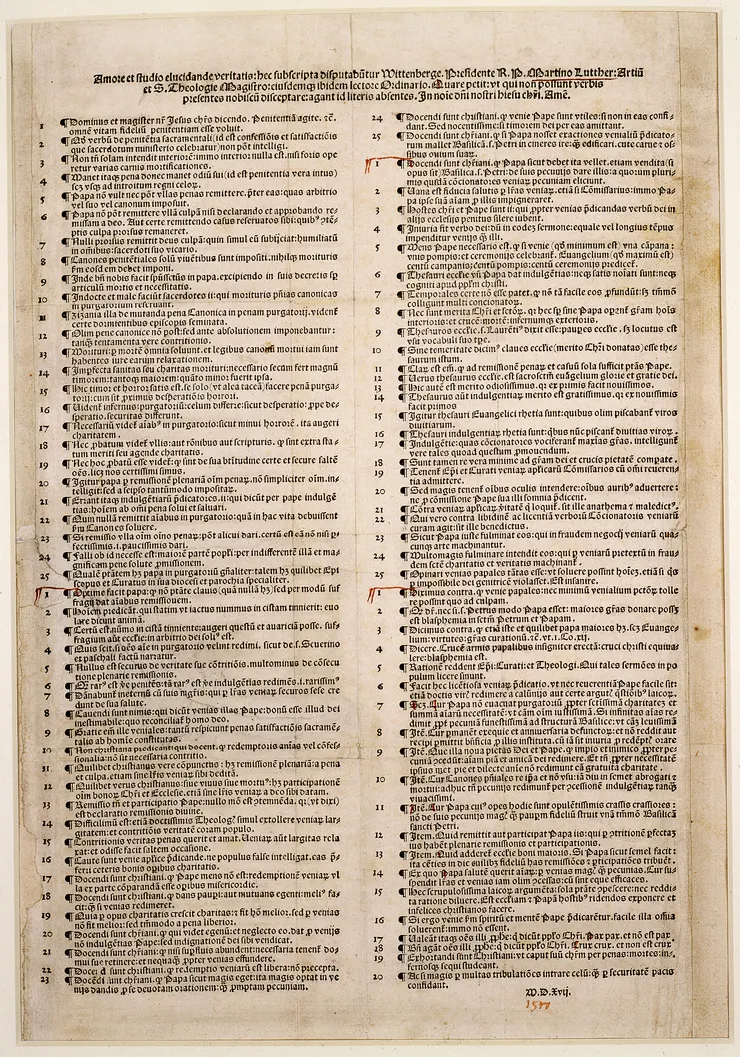 Amore et studio elucidande veritatis: hec subscripta disputabũtur Wittenberge. Presidente R. P. Martino Lutther: Artiũ
et S. Theologie Magistro: eiusdemqꝫ ibidem lectore Ordinario. Quare petit: vt qui non possunt verbis
presentes nobiscũ disceptare: agant id literis absentes. In noĩe dñi nostri hiesu chr̃i. Amẽ.
1 ¶ Dominus et magister nr̃ Jesus chr̃s dicendo. Penitentiã agite. ꝛc.
omnẽ vitam fideliũ penitentiam esse voluit.
2 ¶ Qđ verbũ de penitẽtia sacramentali (id est confessiõis et satisfactiõis
que sacerdotum ministerio celebratur) non põt intelligi.
3 ¶ Non tñ solam intendit interiorẽ: immo interior nulla est. nisi foris ope
retur varias carnis mortificationes.
4 ¶ Manet itaqꝫ pena donec manet odiũ sui (id est penitentia vera intus)
scꝫ vsqꝫ ad introitum regni celoꝝ.
5 ¶ Papa nõ vult nec põt vllas penas remittere. p̃ter eas: quas arbitrio
vel suo vel canonum imposuit.
6 ¶ Papa nõ põt remittere vllã culpã nisi declarando et approbando re-
missam a deo. Aut certe remittendo casus reseruatos sibi: quibꝰ ↄtẽ-
ptis culpa prorsus remaneret.
7 ¶ Nulli prorsus remittit deus culpã: quin simul eũ subijciat: humiliatũ
in omĩbus: sacerdoti suo vicario.
8 ¶ Canones penitẽtiales solũ viuẽtibus sunt impositi: nihilqꝫ morituris
ſm eosdem debet imponi.
9 ¶ Inde bñ nobis facit sp̃ussctũs in papa. excipiendo in suis decretis sꝑ
articulũ mortis et necessitatis.
10 ¶ Indocte et male faciũt sacerdotes ij: qui morituris p̃nĩas canonicas
in purgatorium reseruant.
11 ¶ Zizania illa de mutanda pena Canonica in penam purgatorij. vident̃
certe dormientibus episcopis seminata.
12 ¶ Olim pene canonice nõ post: sed ante absolutionem imponebantur:
tanqꝫ tentamenta vere contritionis.
13 ¶ Morituri: ꝑ mortẽ omnia soluunt. et legibus canonũ mortui iam sunt
habentes iure earum relaxationem.
14 ¶ Imperfecta sanitas seu charitas morituri: necessario secum fert magnũ
timorem: tantoqꝫ maiorem: quãto minor fuerit ipsa.
15 ¶ Hic timor et horror satis est. se solo (vt alia taceã) facere penã purga-
torij: cum sit ꝓximus desperatiõis horrori.
16 ¶ Vident̃ infernus: purgatoriũ: celum differre: sicut desperatio: ꝓpe de-
speratio. securitas differunt.
17 ¶ Necessariũ videt̃ aĩabꝰ in purgatorio: sicut minui horrorẽ. ita augeri
charitatem.
18 ¶ Nec ꝓbatum videt̃ vllis: aut rõnibus aut scripturis. ꝙ sint extra sta-
tum meriti seu agende charitatis.
19 ¶ Nec hoc ꝓbatũ esse videt̃: ꝙ sint de sua btitudine certe et secure saltẽ
oẽs. licꝫ nos certissimi simus.
20 ¶ Igitur papa ꝑ remissionẽ plenariã oĩm penaꝝ. nõ simpliciter oĩm. in-
telligit: sed a seipso tantũmodo impositaꝝ.
21 ¶ Errant itaqꝫ indulgẽtiarũ p̃dicatores. ij: qui dicũt per pape indulgẽ
tias: hoĩem ab oĩni pena solui et saluari.
22 ¶ Quin nullã remittit aĩabus in purgatorio: quã in hac vita debuissent
ſm Canones soluere.
23 ¶ Si remissio vlla oĩm oĩno penaꝝ: põt alicui dari. certũ est eã nõ nisi ꝑ-
fectissimis. i. paucissimis dari.
24 ¶ Falli ob id necesse est: maiorẽ partẽ popli: per indifferentẽ illã et ma-
gnificam pene solute ꝓmissionem.
25 ¶ Qualẽ p̃tãtem hꝫ papa in purgatoriũ gñaliter: talem hꝫ quilibet Epi
scopus et Curatus in sua diocesi et parochia specialiter.
1 ¶ Optime facit papa: ꝙ nõ p̃tãte clauis (quã nullã hꝫ) sed per modũ suf
fragij dat aĩabus remissionem.
2 ¶ Hoĩem p̃dicãt. qui statim vt iactus nummus in cistam tinnierit: euo
lare dicunt animã.
3 ¶ Certũ est. nũmo in cistã tinniente: augeri questũ et auariciã posse. suf-
fragium aũt ecclesie: in arbitrio dei solꝰ est.
4 ¶ Quis scit. si oẽs aĩe in purgatorio velint redimi. sicut de. s. Seuerino
et paschali factũ narratur.
5 ¶ Nullus est securus de veritate sue cõtritiõis. multominus de cõsecu
tione plenarie remissionis.
6 ¶ Qꝫ rarꝰ est ṽe penitẽs: tã rarꝰ est ṽe indulgẽtias redimẽs. i. rarissimꝰ
7 ¶ Dãnabunt̃ ineternũ cũ suis mgr̃is: qui ꝑ lr̃as veniaꝝ securos sese cre
dunt de sua salute.
8 ¶ Cauendi sunt nimis: qui dicũt venias illas Pape: donũ esse illud dei
inestimabile: quo reconciliat̃ homo deo.
9 ¶ Gratie eĩm ille veniales: tantũ respiciunt penas satisfactiõis sacramẽ-
talis ab homie constitutas.
10 ¶ Non christiana predicant: qui docent. ꝙ redemptoris aĩas vel cõfes-
sionalia: nõ sit necessaria contritio.
11 ¶ Quilibet christianus vere cõpunctus: hꝫ remissionẽ plenariã: a pena
et culpa. etiam sine lr̃is veniaꝝ sibi debitã.
12 ¶ Quilibet verus christianus: siue viuus siue mortuꝰ: hꝫ participationẽ
oĩm bonoꝝ Chr̃i et Ecclesie. etiã sine lr̃is veniaꝝ a deo sibi datam.
13 ¶ Remissio tñ et participatio Pape: nullo mõ est ↄtẽmnẽda. qꝛ (vt dixi)
est declaratio remissionis diuine.
14 ¶ Difficilimũ est: etiã doctissimis Theologꝭ. simul extollere veniaꝝ lar-
gitatem: et contritiõis veritatẽ coram populo.
15 ¶ Contritiõis veritas penas querit et amat. Veniaꝝ aũt largitas rela
xat: et odisse facit saltem occasione.
16 ¶ Caute sunt venie apl̃ice p̃dicande. ne populus false intelligat. eas p̃-
ferri ceteris bonis opibus charitatis.
17 ¶ Docendi sunt christiani. ꝙ Pape mens nõ est: redemptionẽ veniaꝝ vl
la ex parte cõparandã esse opibus misericordie.
18 ¶ Docendi sunt christiani. ꝙ dans pauꝑi: aut mutuans egenti: meliꝰ fa-
cit: ꝙꝫ si venias redimeret.
19 ¶ Quia ꝑ opus charitatis crescit charitas: et fit hõ melior. sed ꝑ venias
nõ fit melior: sed tm̃mõo a pena liberior.
20 ¶ Docendi sunt christiani. ꝙ qui videt egenũ: et neglecto eo. dat ꝓ venijs
nõ indulgẽtias Pape: sed indignationẽ dei sibi vendicat.
21 ¶ Docendi sunt chr̃iani: ꝙ nisi suꝑfluis abundent: necessaria tenent̃ do-
mui sue retinere: et nequaqꝫ ꝓpter venias effundere.
22 ¶ Docẽdi sunt christiani. ꝙ redemptio veniaꝝ est libera: nõ p̃cepta.
23 ¶ Docẽdi sunt chr̃iani. ꝙ Papa sicut magis eget: ita magis optat in ve
nijs dandis ꝓ se deuotam orationem: ꝙꝫ ꝓmptam pecuniam.
24 ¶ Docendi sunt christiani. ꝙ venie Pape sunt vtiles: si non in eas confi-
dant. Sed nocentissime: si timorem dei per eas amittant.
25 ¶ Docendi sunt chr̃iani. ꝙ si Papa nosset exactiones venialiũ p̃dicato-
rum mallet Basilicã. s. Petri in cineres ire: ꝙꝫ edificari. cute carne ⁊ os-
sibus ouium suaꝝ.
1 ¶ Docendi sunt chr̃iani. ꝙ Papa sicut debet ita vellet. etiam vendita (si
opus sit) Basilicã. s. Petri: de suis pecunijs dare illis: a quoꝝ plurimis
quĩdã cõcionatores veniaꝝ pecuniam eliciunt.
2 ¶ Vana est fiducia salutis ꝑ lr̃as veniaꝝ. etiã si Cõmissarius: immo Pa-
pa ipse suã aĩam ꝓ illis impigneraret.
3 ¶ Hostes chr̃i et Pape sunt ij: qui ꝓpter venias p̃dicandas verbũ dei in
alijs ecclesijs penitus silere iubent.
4 ¶ Iniuria fit verbo dei: dũ in eodẽ sermone: equale vel longius tẽpus
impenditur venijs ꝙꝫ illi.
5 ¶ Mens Pape necessario est. ꝙ si venie (qđ minimum est) vna cãpana:
vnis pompis: et ceremonijs celebrant̃. Euangelium (qđ maximũ est)
centũ campanis: centũ pompis: centũ ceremonijs predicet̃.
6 ¶ Thesauri ecclie vñ Papa dat indulgẽtias: neqꝫ satis noĩati sunt: neqꝫ
cogniti apud pplm̃ christi.
7 ¶ Temporales certe nõ esse patet. ꝙ nõ tã facile eos ꝓfundũt: sꝫ tm̃mõ
colligunt multi concionatoꝝ.
8 ¶ Nec sunt merita Chr̃i et sctõꝝ. ꝙ hec sꝑ sine Papa oꝑant̃ gr̃am hoĩs
interioris: et crucẽ: mortẽ: infernumqꝫ exterioris.
9 ¶ Thesauros ecclie. s. Laurẽtiꝰ dixit esse: pauꝑes ecclie. sꝫ locutus est
vsu vocabuli suo tꝑe.
10 ¶ Sine temeritate dicimꝰ claues ecclie (merito Chr̃i donatas) esse the-
saurum istum.
11 ¶ Claꝝ est eĩm. ꝙ ad remissionẽ penaꝝ et casuũ sola sufficit p̃tãs Pape.
12 ¶ Verus thesaurus ecclie. est sacrosctm̃ euãgelium glorie et gratie dei.
13 ¶ Hic aũt est merito odiosissimus. qꝛ ex primis facit nouissimos.
14 ¶ Thesaurus aũt indulgentiaꝝ merito est gratissimus. qꝛ ex nouissimis
facit primos
15 ¶ Igitur thesauri Euangelici rhetia sunt: quibus olim piscabant̃ viros
diuitiarum.
16 ¶ Thesauri indulgentiaꝝ rhetia sunt: qbus nũc piscant̃ diuitias viroꝝ.
17 ¶ Indulgẽtie: quas cõcionatores vociferant̃ maximas gr̃as. intelligunt̃
vere tales quoad questum ꝓmouendum.
18 ¶ Sunt tamen re vera minime ad gr̃am dei et crucis pietatẽ compate.
19 ¶ Tenent̃ Ep̃i et Curati veniaꝝ apl̃icaꝝ Cõmissarios cũ om̃i reueren-
tia admittere.
20 ¶ Sed magis tenent̃ oĩbus oculis intendere: oĩbus auribꝰ aduertere:
ne ꝓ cõmissione Pape sua illi somnia p̃dicent.
21 ¶ Cõtra veniaꝝ apl̃icaꝝ ṽitatẽ qͥ loquit̃. sit ille anathema ⁊ maledictꝰ.
22 ¶ Qui vero contra libidinẽ ac licentiã verborũ Cõcionatoris veniarũ
curam agit: sit ille benedictus.
23 ¶ Sicut Papa iuste fulminat eos: qui in fraudem negocij veniarũ qua-
cunqꝫ arte machinantur.
24 ¶ Multomagis fulminare intendit eos: qui ꝑ veniarũ pretextũ in frau
dem sctẽ charitatis et veritatis machinant̃.
25 ¶ Opinari venias papales tãtas esse: vt soluere possint hoĩẽ. etiã si qͥs
ꝑ impossibile dei genitricẽ violasset. Est insanire.
1 ¶ Diximus contra. ꝙ venie papales: nec minimũ venialium pctõꝝ tolle-
re possint quo ad culpam.
2 ¶ Qđ dr̃. nec si. s. Petrus modo Papa esset: maiores gr̃as donare possꝫ
est blasphemia in sctm̃ Petrum et Papam.
3 ¶ Dicimus contra. ꝙ etiã iste et quilibet papa maiores hꝫ. scꝫ Euange-
lium: virtutes: gr̃as curationũ. ꝛc. vt. i. Co. xij.
4 ¶ Dicere. Crucẽ armis papalibus insigniter erectã: cruci christi equiua-
lere: blasphemia est.
5 ¶ Rationẽ reddent Ep̃i: Curati: et Theologi. Qui tales sermões in po
pulum licere sinunt.
6 ¶ Facit hec licẽtiosa veniaꝝ p̃dicatio. vt nec reuerentiã Pape facile sit:
etiã doctis viris redimere a calũnijs aut certe argutꝭ q̃stiõibꝰ laicoꝝ.
7 ¶ Scꝫ. Cur Papa nõ euacuat purgatoriũ ꝓpter sctissimã charitatẽ et
summã aĩarũ necessitatẽ: vt cãm oĩm iustissimã. Si infinitas aĩas re-
dimit ꝓpt̃ pecuniã funestissimã ad structurã Basilice: vt cãm leuissimã
8 ¶ Itẽ. Cur permanent exequie et anniuersaria defunctoꝝ: et nõ reddit aut
recipi ꝑmittit bñficia ꝓ illis instituta. cũ iã sit iniuria ꝓ redẽptꝭ orare
9 ¶ Itẽ. Que illa noua pietas Dei et Pape. ꝙ impio et inimico ꝓpter pe-
cuniã ↄcedũt: aĩam piã et amicã dei redimere. Et tñ ꝓpter necessitatẽ
ipsius met pie et dilecte aĩe nõ redimunt eã gratuita charitate.
10 ¶ Itẽ. Cur Canones pñiales re ip̃a et nõ vsu: iã diu in semet abrogati ⁊
mortui: adhuc tñ pecunijs redimunt̃ per ↄcessionẽ indulgentiaꝝ tanqꝫ
viuacissimi.
11 ¶ Itẽ. Cur Papa cuiꝰ opes hodie sunt opulẽtissimis crassis crassiores:
nõ de suis pecunijs magꝭ ꝙꝫ pauꝑum fideliũ struit vnã tm̃mõ Basilicã
sancti Petri.
12 ¶ Item. Quid remittit aut participat Papa ijs: qui ꝑ ↄtritionẽ ꝑfectã
ius habẽt plenarie remissionis et participationis.
13 ¶ Item. Quid adderet̃ ecclie boni maioris. Si Papa sicut semel facit:
ita cẽties in die cuilibꝫ fideliũ has remissiões ⁊ ꝑticipatiões tribuẽt.
14 ¶ Ex quo Papa salutẽ querit aĩaꝝ ꝑ venias magꝭ ꝙꝫ pecunias. Cur su-
spendit lr̃as et venias iam olim ↄcessas: cũ sint eque efficaces.
15 ¶ Hec scrupulosissima laicoꝝ argumẽta: sola p̃tãte ↄpescere: nec reddi-
ta ratione diluere. Est ecclesiam ⁊ Papã hostibꝰ ridendos exponere et
infelices christianos facere.
16 ¶ Si ergo venie ſm spiritũ et mentẽ Pape p̃dicarẽtur. facile illa oĩnia
soluerent̃: immo nõ essent.
17 ¶ Valeãt itaqꝫ oẽs illi ꝓphe: qͥ dicũt pplo Chr̃i. Pax pax. et nõ est pax.
18 ¶ Bñ agãt oẽs illi ꝓphe: qͥ dicũt pplo Chr̃i. Crux crux. et non est crux
19 ¶ Exhortandi sunt Christiani: vt caput suũ chr̃m per penas: mortes: in-
fernosqꝫ sequi studeant.
20 ¶ Ac sic magis ꝑ multas tribulatiões intrare celũ: ꝙꝫ ꝑ securitatẽ pacis
confidant.
M.D.Xvij.
1517